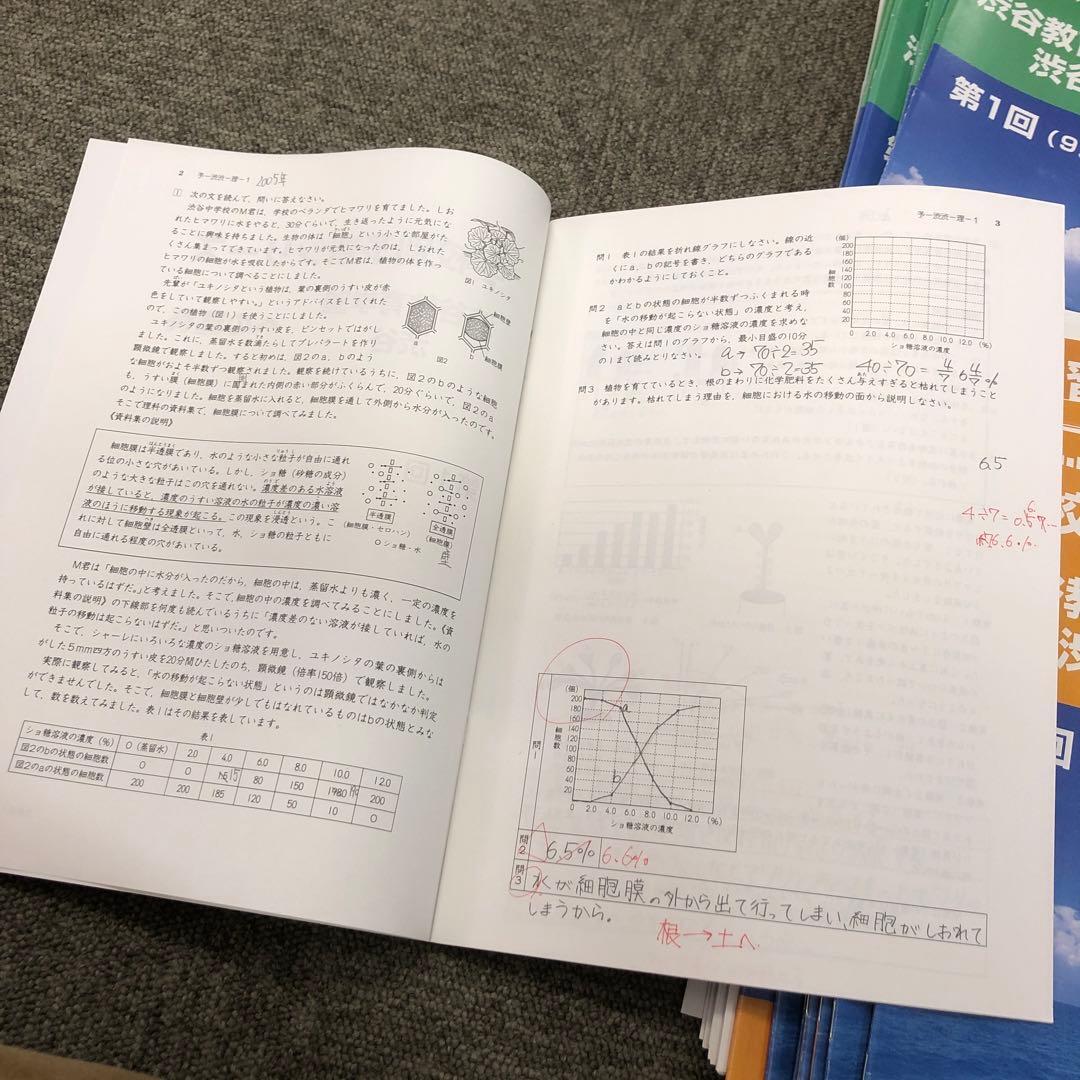 2 予一渋渋一理ー1 2005年
1 次の文を読んで、問いに答えなさい。
渋谷中学校のM君は、学校のベランダでヒマワリを育てました。しお
れたヒマワリに水をやると、30分ぐらいで、生き返ったように元気にな
ることに興味を持ちました。生物の体は「細胞」という小さな部屋がた
くさん集まってできています。ヒマワリが元気になったのは、しおれた
ヒマワリの細胞が水を吸収したからです。そこでM君は、植物の体を作っ
ている細胞について調べることにしました。
先輩が「ユキノシタという植物は、葉の裏側のうすい皮が赤
色をしていて観察しやすい。」というアドバイスをしてくれた
ので、この植物(図1)を使うことにしました。
ユキノシタの葉の裏側のうすい皮を、ピンセットではがし
ました。これに、蒸留水を数滴たらしてプレパラートを作り
顕微鏡で観察しました。すると初めは、図2のa、bのよう
な細胞がおよそ半数ずつ観察されました。観察を続けているうちに、図2のbのような細胞
も、うすい膜(細胞膜)に囲まれた内側の赤い部分がふくらんで、20分ぐらいで、図2のa
のようになりました。細胞を蒸留水に入れると、細胞膜を通して外側から水分が入ったのです。
そこで理科の資料集で、細胞膜について調べてみました。
図1 ユキノシタ
細胞壁
a
図2
b
細胞膜
《資料集の説明》
細胞膜は半透膜であり、水のような小さな粒子が自由に通れ
る位の小さな穴があいている。しかし、ショ糖(砂糖の成分)
のような大きな粒子はこの穴を通れない。濃度差のある水溶液
が接していると、濃度のうすい溶液の水の粒子が濃度の濃い溶
液のほうに移動する現象が起こる。この現象を浸透という。こ
れに対して細胞壁は全透膜といって、水、ショ糖の粒子ともに
自由に通れる程度の穴があいている。
半透膜
(細胞膜・セロハン)
全透膜
(細胞膜)
壁
○ショ糖・水
M君は「細胞の中に水分が入ったのだから、細胞の中は、蒸留水よりも濃く、一定の濃度を
持っているはずだ。」と考えました。そこで、細胞の中の濃度を調べてみることにしました。《資
料集の説明》の下線部を何度も読んでいるうちに「濃度差のない溶液が接していれば、水の
粒子の移動は起こらないはずだ。」と思いついたのです。
そこで、シャーレにいろいろな濃度のショ糖溶液を用意し、ユキノシタの葉の裏側からは
がした5mm四方のうすい皮を20分間ひたしたのち、顕微鏡(倍率150倍)で観察しました。
実際に観察してみると、「水の移動が起こらない状態」というのは顕微鏡ではなかなか判定
ができませんでした。そこで、細胞膜と細胞壁が少しでもはなれているものはbの状態とみな
して、数を数えてみました。表1はその結果を表しています。
表1
ショ糖溶液の濃度(%) 0(蒸留水) 2.0 4.0 6.0 8.0 10.0 12.0
図2のbの状態の細胞数 0 0 15 80 150 190 200
図2のaの状態の細胞数 200 200 185 120 50 10 0
予一渋渋一理ー1 3
問1 表1の結果を折れ線グラフにしなさい。線の近
くにa、bの記号を書き、どちらのグラフである
かわかるようにしておくこと。
問2 aとbの状態の細胞が半数ずつふくまれる時
を「水の移動が起こらない状態」の濃度と考え、
細胞の中と同じ濃度のショ糖溶液の濃度を求めな
さい。答えは問1のグラフから、最小目盛の10分
の1まで読みとりなさい。
(個)
200
180
160
140
120
100
80
60
40
20
0
細胞数
0 2.0 4.0 6.0 8.0 10.0 12.0 (%)
ショ糖溶液の濃度
a→ 70÷2=35
b→ 70÷2=35
40÷70=4/7 6 4/7 %
問3 植物を育てているとき、根のまわりに化学肥料をたくさん与えすぎると枯れてしまうこと
があります。枯れてしまう理由を、細胞における水の移動の面から説明しなさい。
6.5
6.
4÷7=0.57…
約6.6%.
問1
(個)
200
180
160
140
120
100
80
60
40
20
0
細胞数
a
b
0 2.0 4.0 6.0 8.0 10.0 12.0 (%)
ショ糖溶液の濃度
問2 6.5% 6.6%
問3 水が細胞膜の外から出て行ってしまい、細胞がしおれて
しまうから。
根→土へ
渋谷教
渋谷
第1回(9